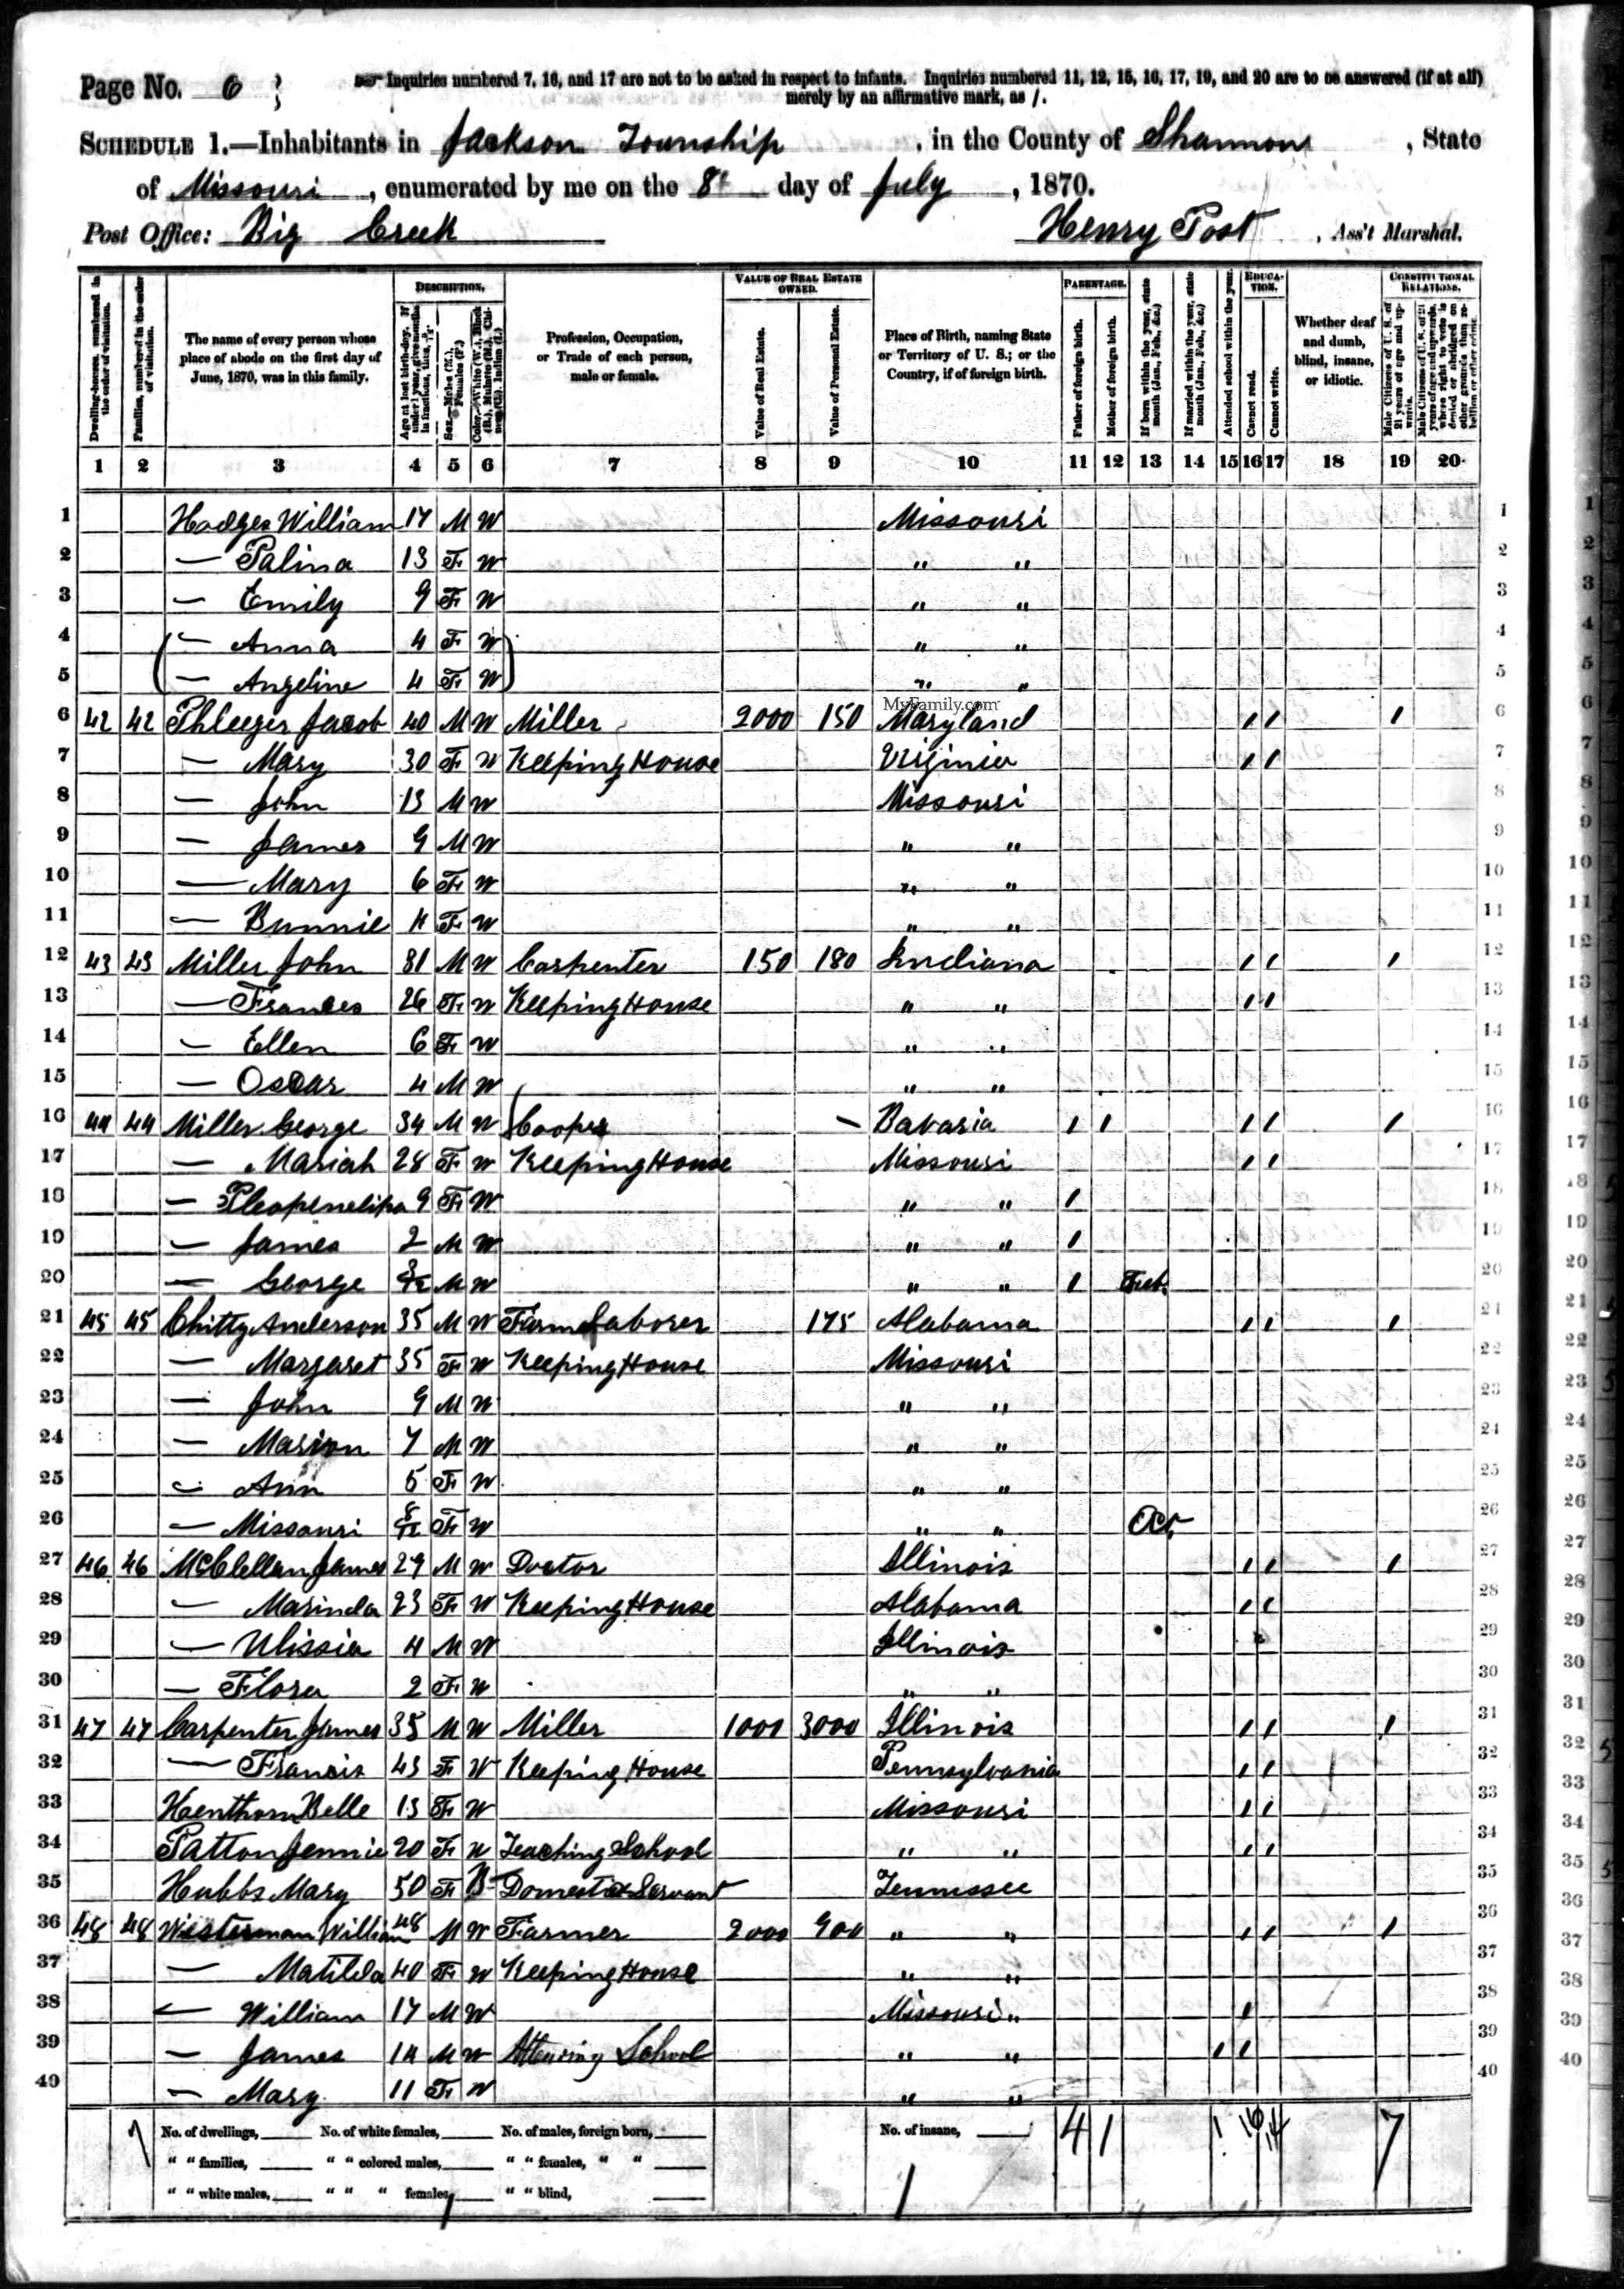 Page No. 6
Inquiries numbered 7, 16, and 17 are not to be asked in respect to infants. Inquiries numbered 11, 12, 15, 16, 17, 19, and 20 are to be answered (if at all)
merely by an affirmative mark, as /.
SCHEDULE 1.—Inhabitants in Jackson Township, in the County of Shannon, State
of Missouri, enumerated by me on the 8th day of July, 1870.
Post Office: Big Creek Henry Post, Ass't Marshal.
Dwelling-houses, numbered in the order of visitation.
Families, numbered in the order of visitation.
The name of every person whose place of abode on the first day of June, 1870, was in this family.
DESCRIPTION.
Age at last birth-day. If under 1 year, give months in fractions, thus, 3/12
Sex.—Males (M.), Females (F.)
Color.—White (W.), Black (B.), Mulatto (M.), Chinese (C.), Indian (I.)
Profession, Occupation, or Trade of each person, male or female.
VALUE OF REAL ESTATE OWNED.
Value of Real Estate.
Value of Personal Estate.
Place of Birth, naming State or Territory of U. S.; or the Country, if of foreign birth.
PARENTAGE.
Father of foreign birth.
Mother of foreign birth.
If born within the year, state month (Jan., Feb., &c.)
If married within the year, state month (Jan., Feb., &c.)
EDUCATION.
Attended school within the year.
Cannot read.
Cannot write.
Whether deaf and dumb, blind, insane, or idiotic.
CONSTITUTIONAL RELATIONS.
Male Citizens of U. S. of 21 years of age and upwards.
Male Citizens of U. S. of 21 years of age and upwards, whose right to vote is denied or abridged on other grounds than rebellion or other crime.
1 2 3 4 5 6 7 8 9 10 11 12 13 14 15 16 17 18 19 20
1 Hodges William 17 M W Missouri 1
2 — Palina 13 F W " " 2
3 — Emily 9 F W " " 3
4 — Anna 4 F W " " 4
5 — Angeline 4 F W " " 5
MyFamily.com
6 42 42 Phleeger Jacob 40 M W Miller 2000 150 Maryland / / / 6
7 — Mary 30 F W Keeping House Virginia / / 7
8 — John 13 M W Missouri 8
9 — James 9 M W " " 9
10 — Mary 6 F W " " 10
11 — Bunnie 4 F W " " 11
12 43 43 Miller John 31 M W Carpenter 150 180 Indiana / / / 12
13 — Frances 26 F W Keeping House " " / / 13
14 — Ellen 6 F W " " 14
15 — Oscar 4 M W " " 15
16 44 44 Miller George 34 M W Cooper — Bavaria / / / / / 16
17 — Mariah 28 F W Keeping House Missouri / / 17
18 — 9 F W " " / 18
19 — James 2 M W " " / 19
20 — George 3/12 M W " " / Feb. 20
21 45 45 Chitty Anderson 35 M W Farm Laborer 175 Alabama / / / 21
22 — Margaret 35 F W Keeping House Missouri 22
23 — John 9 M W " " 23
24 — Marion 7 M W " " 24
25 — Ann 5 F W " " 25
26 — Missouri 8/12 F W " " Oct. 26
27 46 46 McClellan James 29 M W Doctor Illinois / / / 27
28 — Marinda 23 F W Keeping House Alabama / / 28
29 — Ulissia 4 M W Illinois 29
30 — Flora 2 F W " " 30
31 47 47 Carpenter James 35 M W Miller 1000 3000 Illinois / / / 31
32 — Francis 43 F W Keeping House Pennsylvania / / 32
33 Henthorn Belle 13 F W Missouri / / 33
34 Patton Jennie 20 F W Teaching School " " / / 34
35 Hubbs Mary 50 F B Domestic Servant Tennessee 35
36 48 48 Westerman William 48 M W Farmer 2000 900 " " / / / 36
37 — Matilda 40 F W Keeping House " " 37
38 — William 17 M W Missouri " / 38
39 — James 14 M W Attending School " " / / 39
40 — Mary 11 F W " " 40
7 No. of dwellings, No. of white females, No. of males, foreign born, No. of insane, 4 1 1 16 14 7
" " families, " " colored males, " " females, " "
" " white males, " " " females, 1 " " blind, 1